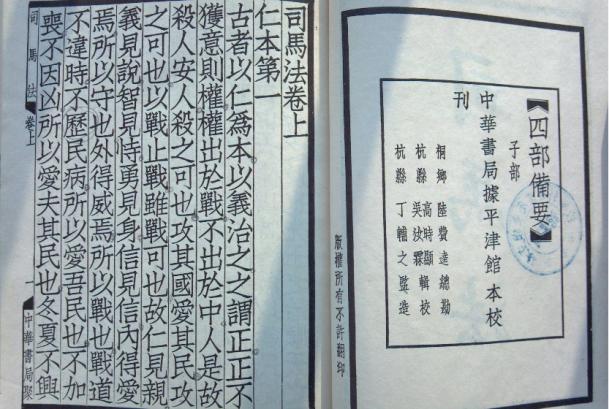 【四部備要】
子部
中華書局據平津館本校
刊
桐鄉 陸費逵總勘
杭縣 高時顯 輯校
杭縣 吳汝霖
杭縣 丁輔之監造
版權所有不許翻印
司馬法卷上
仁本第一
古者以仁爲本以義治之之謂正正不
獲意則權權出於戰不出於中人是故
殺人安人殺之可也攻其國愛其民攻
之可也以戰止戰雖戰可也故仁見親
義見說智見恃勇見身信見信內得愛
焉所以守也外得威焉所以戰也戰道
不違時不歷民病所以愛吾民也不加
喪不因凶所以愛夫其民也冬夏不興
司馬法 卷上 一 中華書局聚